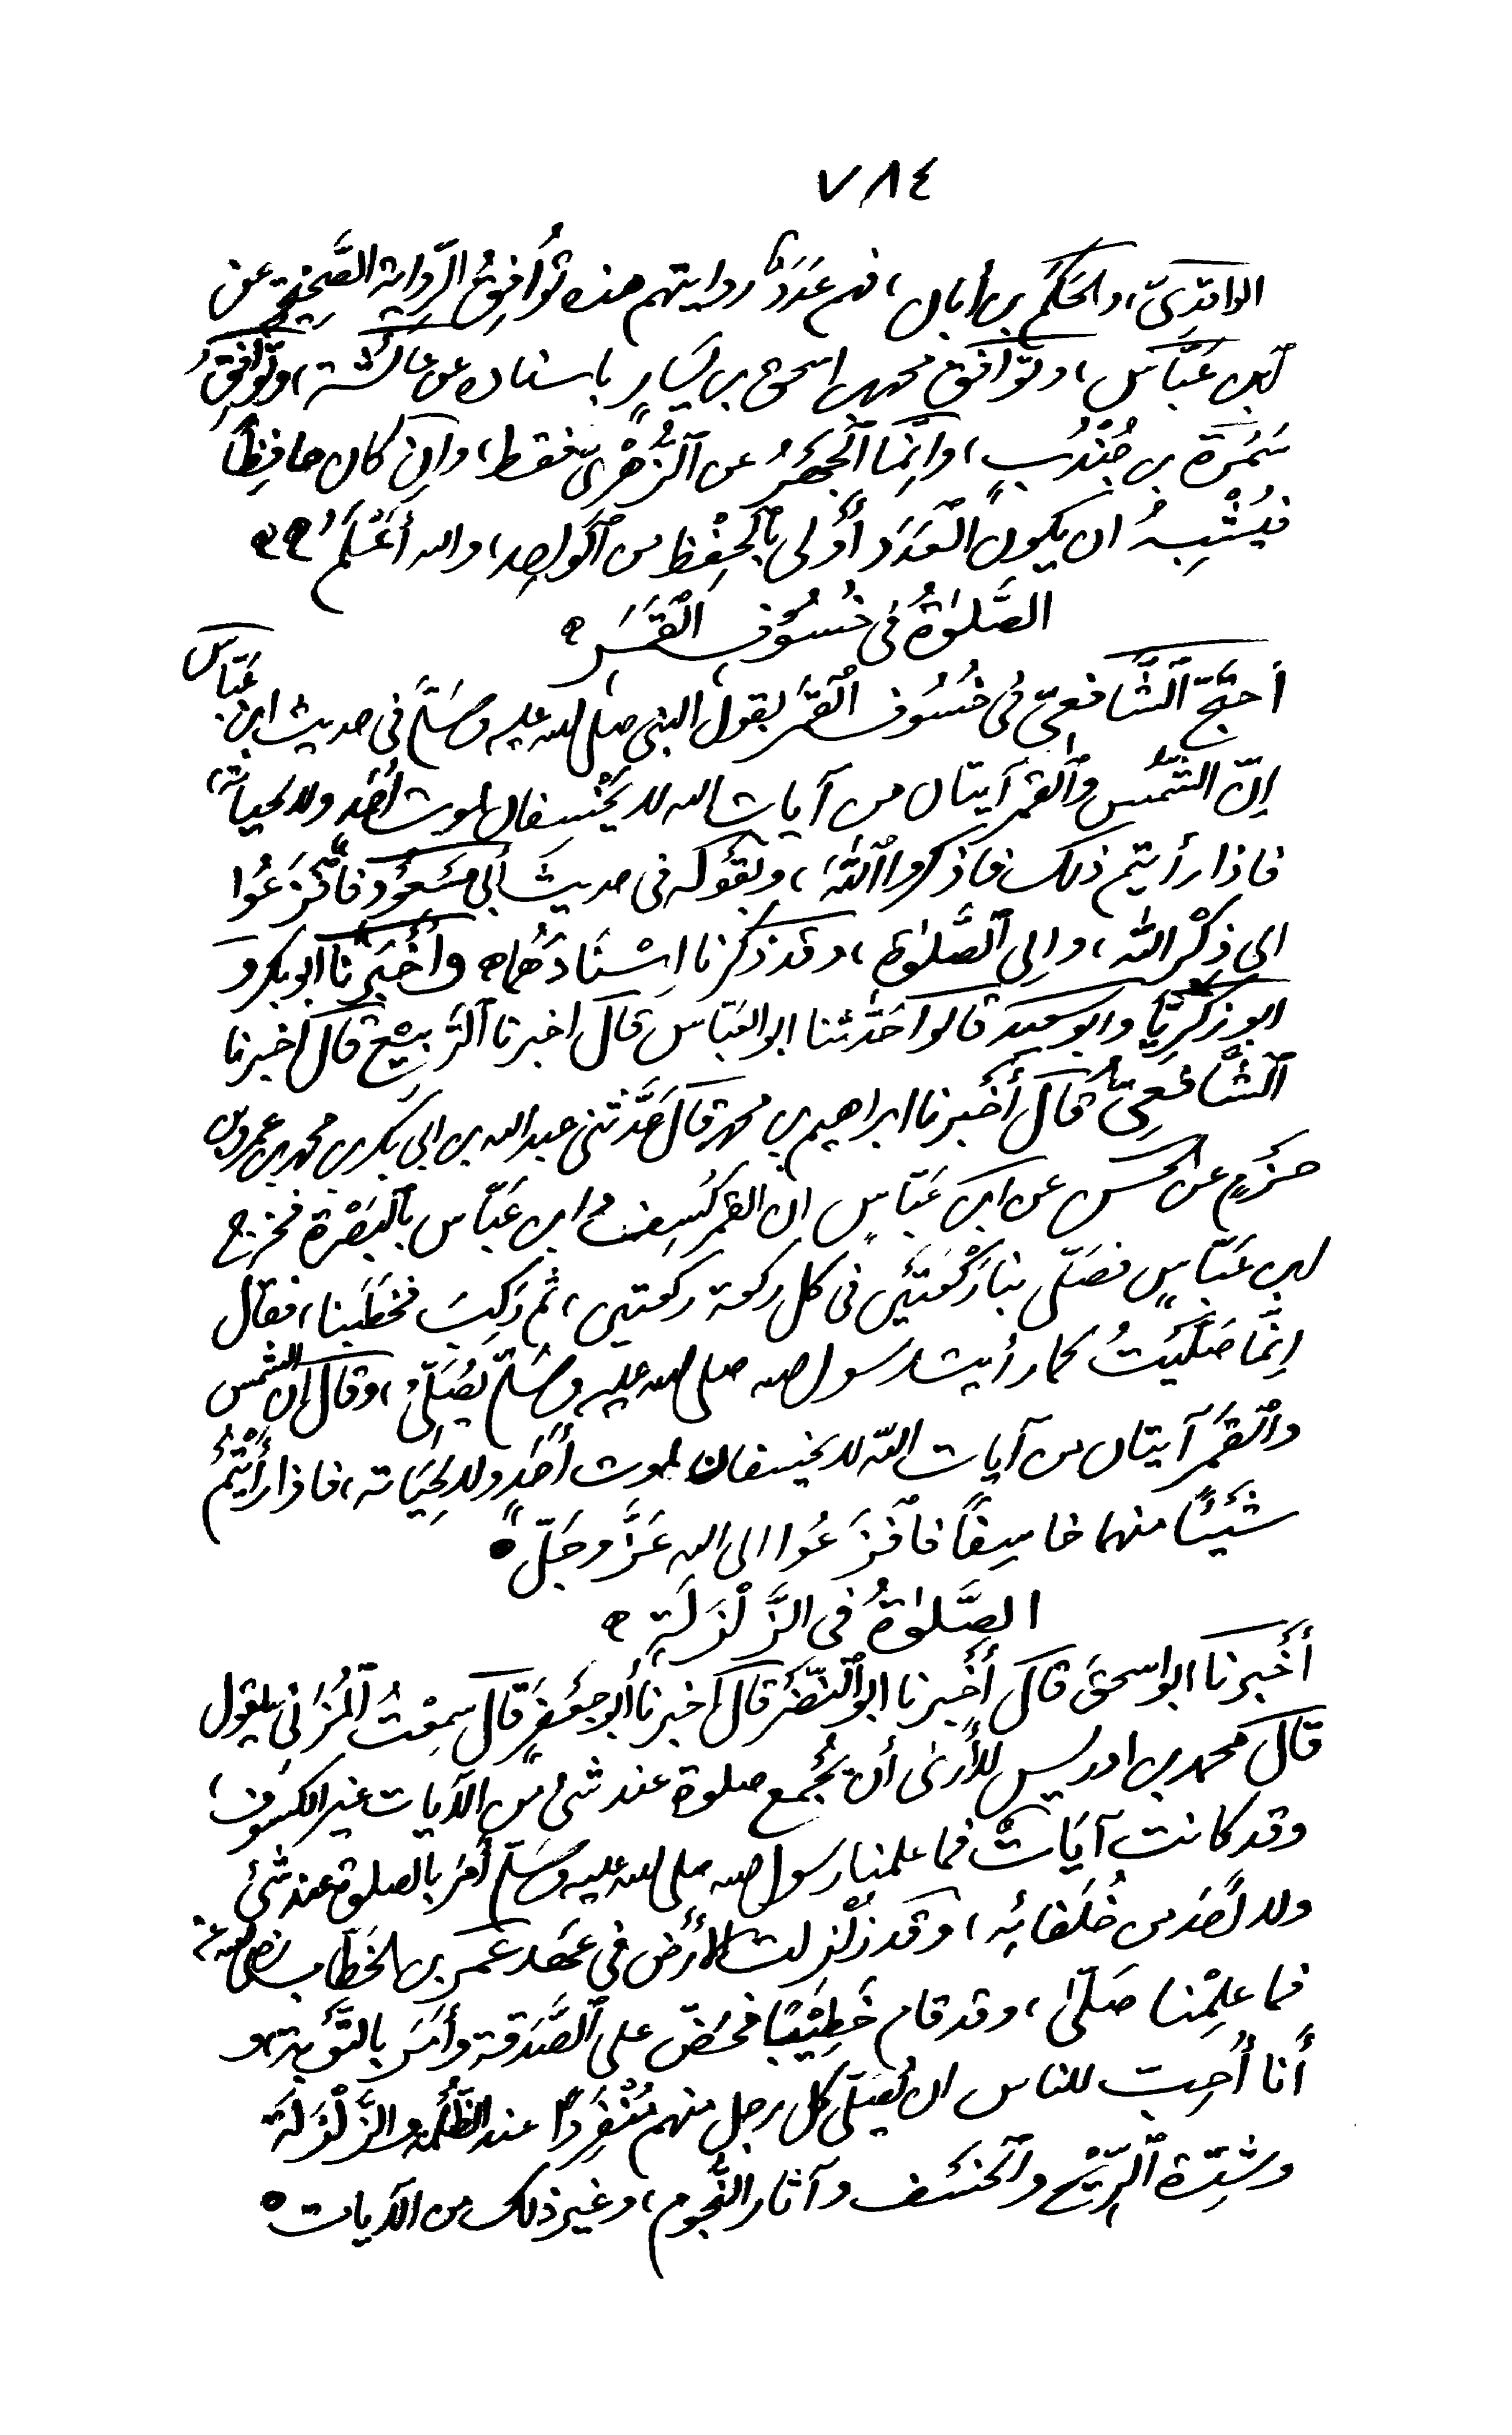 ٧٨٤
الواقدي، والحكم بن أبان، فهم عدد روايتهم هذه توافق الرواية الصحيحة عن
ابن عباس، وتوافق محمد بن اسحق بن يسار باسناده عن عائشة، وتوافق
سمرة بن جندب، وانما الجهر عن الزهري فقط، وان كان حافظا
فيشبه ان يكون العدد أولى بالحفظ من الواحد، والله أعلم
الصلوة في خسوف القمر
احتج الشافعي في خسوف القمر بقول النبي صلى الله عليه وسلم في حديث ابن عباس
ان الشمس والقمر آيتان من آيات الله لا يخسفان لموت أحد ولا لحياته،
فاذا رأيتم ذلك فاذكروا الله، وبقوله في حديث أبي مسعود فافزعوا
الى ذكر الله، والى الصلوة، وقد ذكرنا اسنادهما ه وأخبرنا ابو بكر و
ابو زكريا وابو سعيد قالوا حدثنا ابو العباس قال اخبرنا الربيع قال اخبرنا
الشافعي قال أخبرنا ابراهيم بن محمد قال حدثني عبد الله بن ابي بكر بن محمد بن عمرو بن
حزم عن الحسن عن ابن عباس ان القمر كسف وابن عباس بالبصرة فخرج
ابن عباس فصلى بنا ركعتين في كل ركعة ركعتين، ثم ركب فخطبنا، فقال
انما صليت كما رأيت رسول الله صلى الله عليه وسلم يصلي، وقال ان الشمس
والقمر آيتان من آيات الله لا يخسفان لموت أحد ولا لحياته، فاذا رأيتم
شيئا منهما خاسفا فافزعوا الى الله عز وجل ه
الصلوة في الزلزلة ه
أخبرنا ابو اسحق قال أخبرنا ابو النضر قال اخبرنا أبو جعفر قال سمعت المزني يقول
قال محمد بن ادريس لا أرى أن يجمع صلوة عند شئ من الآيات غير الكسوف،
وقد كانت آيات فما علمنا رسول الله صلى الله عليه وسلم أمر بالصلوة عند شئ
ولا أحد من خلفائه، وقد زلزلت الأرض في عهد عمر بن الخطاب رضي الله عنه
فما علمنا صلى، وقد قام خطيبا فحض على الصدقة وأمر بالتوبة، و
أنا أحب للناس ان يصلي كل رجل منهم منفردا عند الظلمة والزلزلة
وشدة الريح والخسف وآثار النجوم، وغير ذلك من الآيات ه